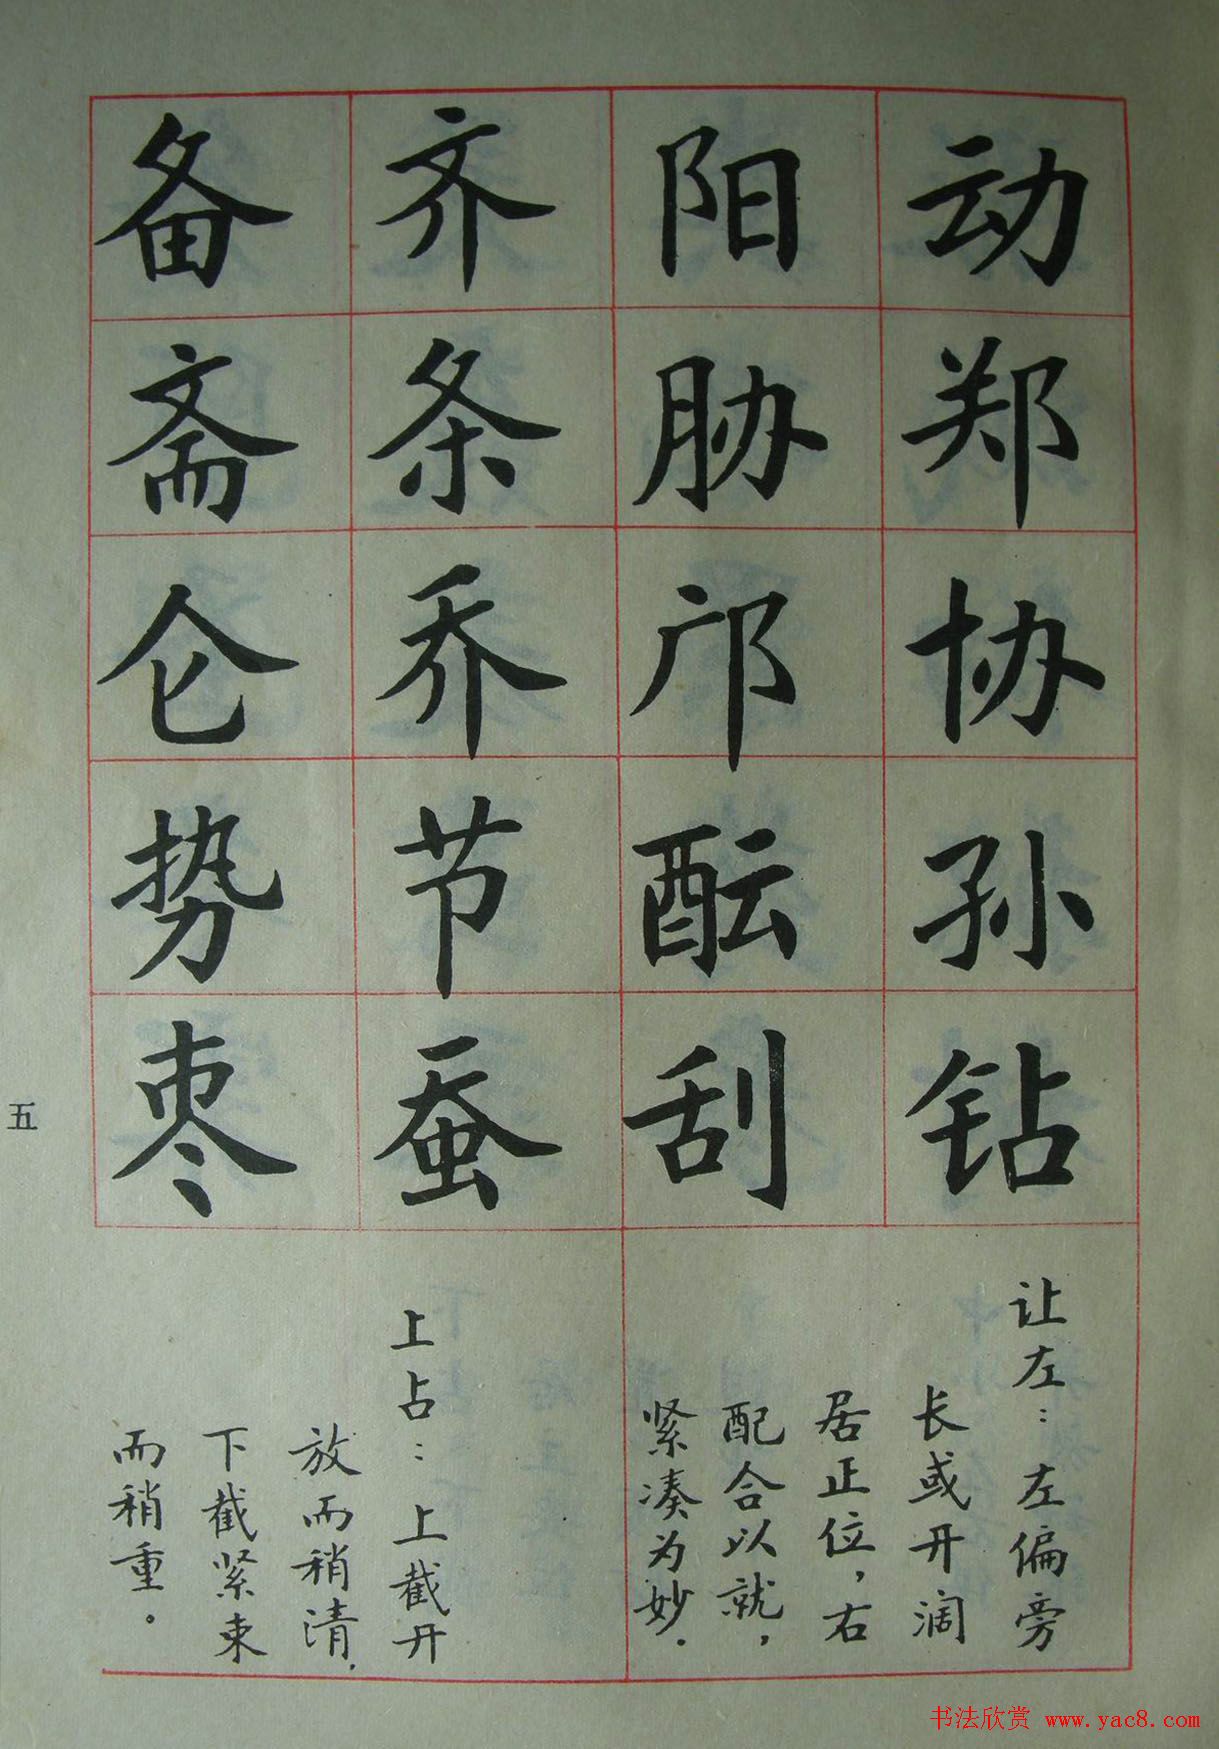 动郑协孙钻
阳胁邝酝刮
齐条乔节蚕
备斋仑势枣
让左：左偏旁
长或开阔
居正位，右
配合以就，
紧凑为妙.
上占：上截开
放而稍清，
下截紧束
而稍重。
五
书法欣赏 www.yac8.com